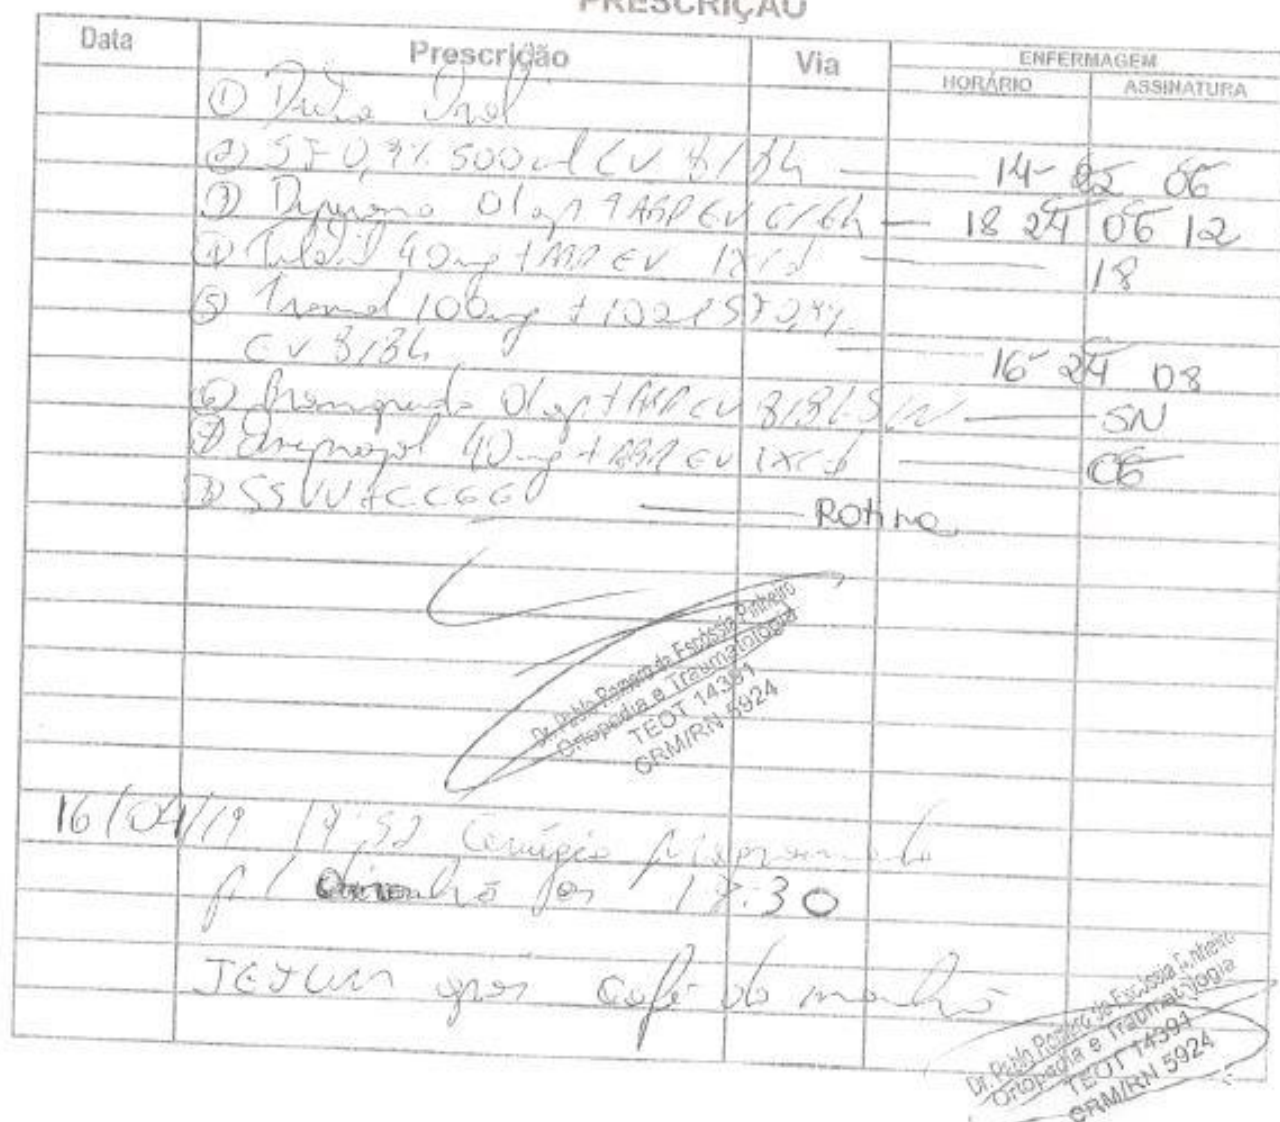 PRESCRIÇÃO
Data Prescrição Via ENFERMAGEM
HORÁRIO ASSINATURA
① Dieta Oral
② SF 0,9% 500ml EV 8/8h 14- 22 06
③ Dipirona 01 amp + ABD EV 6/6h — 18 24 06 12
④ Tilatil 40mg + ABD EV 1x/d 18
⑤ Tramal 100mg + 100ml SF 0,9%
EV 8/8h 16 24 08
⑥ 01 amp + ABD EV 8/8h S/N — SN
⑦ Omeprazol 40mg + ABD EV 1x/d 06
⑧ SSVV + CCGG — Rotina
Dr. Pablo Romero da Escóssia Pinheiro
Ortopedia e Traumatologia
TEOT 14391
CRM/RN 5924
16/04/19 19:52 Cirurgia
p/ as 17:30
JEJUM após café da manhã
Dr. Pablo Romero da Escóssia Pinheiro
Ortopedia e Traumatologia
TEOT 14391
CRM/RN 5924